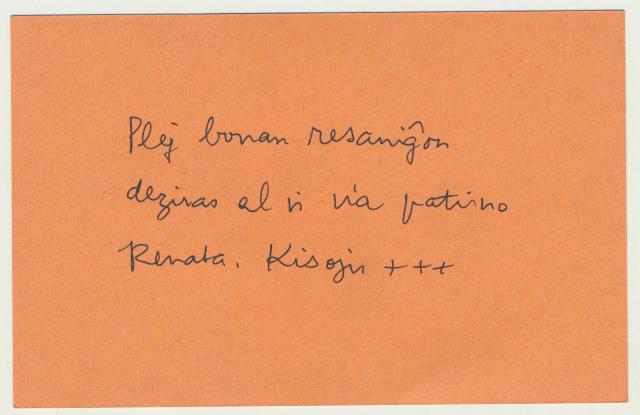 Plej bonan resaniĝon
deziras al vi via patrino
Renata. Kisojn +++